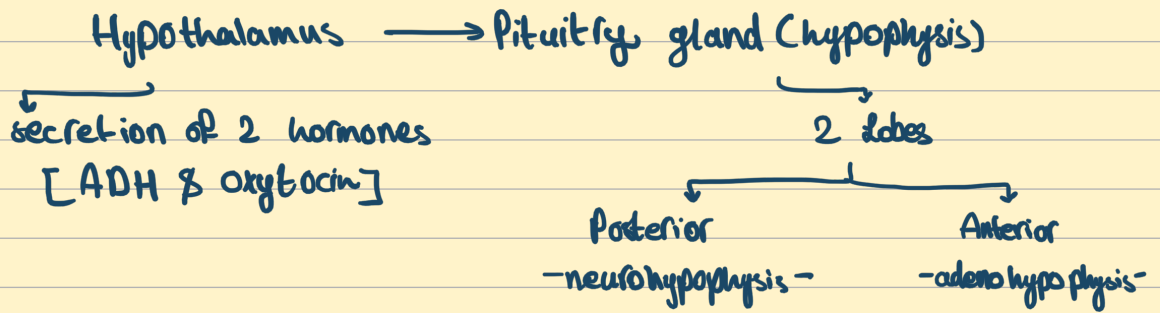 Hypothalamus → Pituitry gland (hypophysis)
secretion of 2 hormones
2 Lobes
[ADH & oxytocin]
Posterior Anterior
-neurohypophysis- -adenohypophysis-